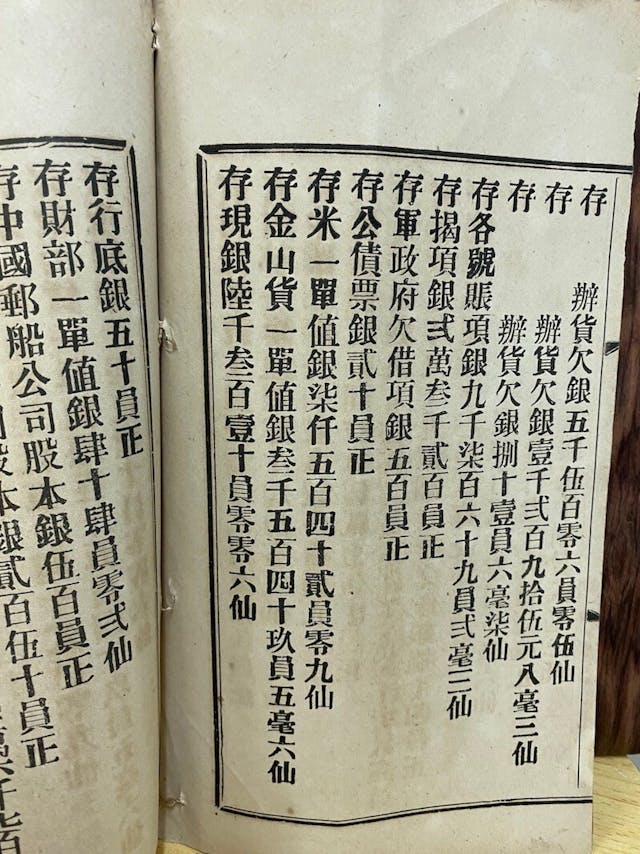 存　辦貨欠銀五千伍百零六員零伍仙
存　辦貨欠銀壹千弍百九拾伍元八毫三仙
存　辦貨欠銀捌十壹員六毫柒仙
存各號賬項銀九千柒百六十九員弍毫二仙
存揭項銀弍萬叁千貳百員正
存軍政府欠借項銀五百員正
存公債票銀貳十員正
存米一單値銀柒仟五百四十貳員零九仙
存金山貨一單値銀叁千五百四十玖員五毫六仙
存現銀陸千叁百壹十員零零六仙
存行底銀五十員正
存財部一單値銀肆十肆員零弍仙
存中國郵船公司股本銀伍百員正
股本銀貳百伍十員正